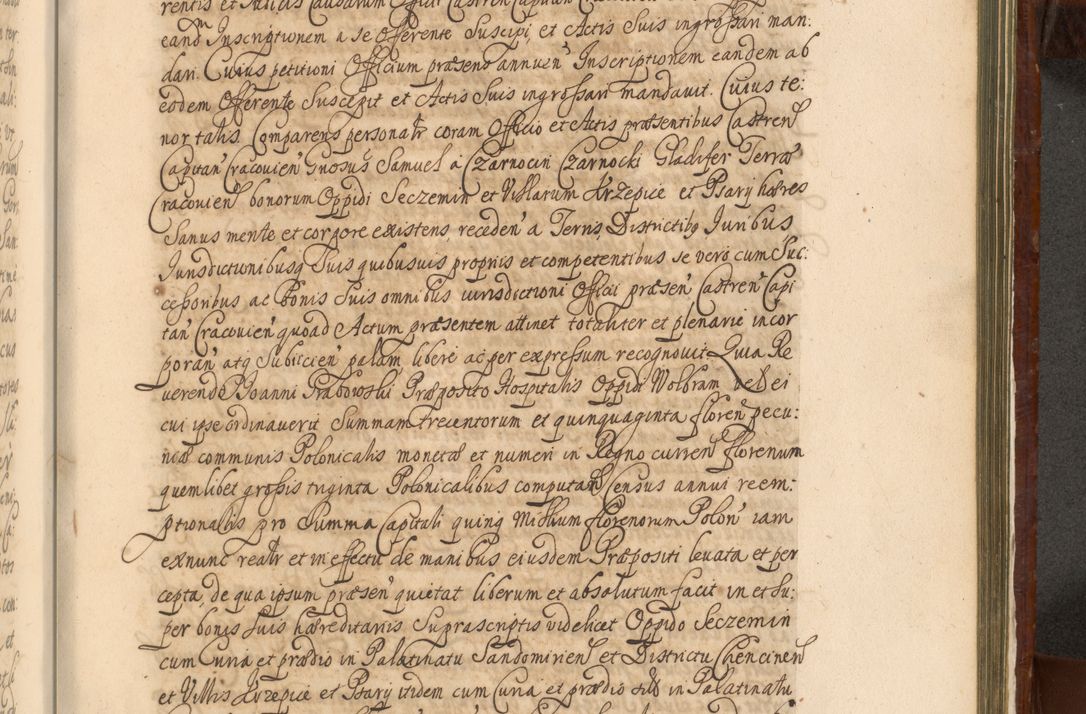 eandm Inscriptionem a se Offerente Suscipi, et Actis Suis ingrossari man:
dari. Cuius petitioni Officium præsens annuen Inscriptionem eandem ab
eodem Offerente Suscepit et Actis Suis ingrossari mandavit. Cuius te:
nor talis. Comparens personalr coram Officio et Actis præsentibus Castren
Capitan Cracovien Gnosus Samuel a Czarnocin Czarnocki Gladifer Terræ
Cracovien bonorum Oppidi Seczemin et Villarum Krzepice et Psary hæres
Sanus mente et corpore existens receden a Terris, Districtibq Iuribus
Iurisdictionibusq Suis quibusvis propriis et competentibus se vero cum Suc:
cessoribus ac bonis Suis omnibus iurisdictioni Officii præsen Castren Capi
tan Cracovien quoad Actum præsentem attinet totaliter et plenarie incor
poran atq Subiicien palam libere ac per expressum recognovit Quia Re
verendo Joanni Grabowski Præposito Hospitalis Oppidi Wolbram vel ei
cui ipse ordinaverit Summam trecentorum et quinquaginta floren pecu:
niæ communis Polonicalis monetæ et numeri in Regno curren florenum
quemlibet grossis triginta Polonicalibus computan Census annui reem:
ptionalis pro Summa Capitali quinq Millium florenorum Polon iam
exnunc realr et in effectu de manibus eiusdem Præpositi levata et per
cepta, de qua ipsum præsen quietat liberum et absolutum facit in et Su:
per bonis Suis hæreditariis Suprascriptis videlicet Oppido Seczemin
cum Curia et prædio in Palatinatu Sandomirien et Districtu Chencinen
et Villis Krzepice et Psary itidem cum Curia et prædio in Palatinatu